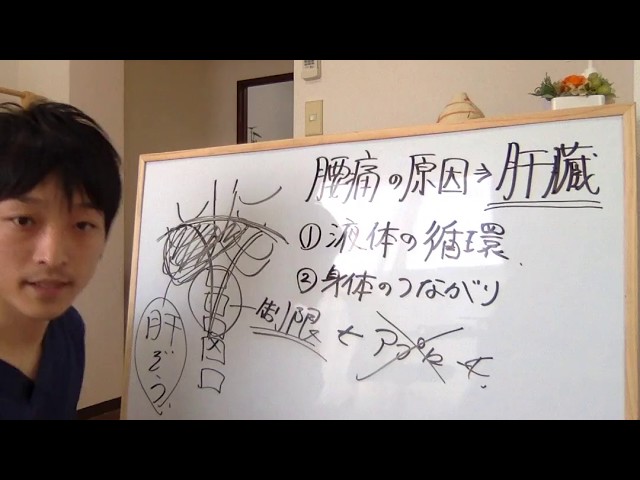 腰痛の原因→肝臓
①液体の循環
②身体のつながり
制限
肝ぞう